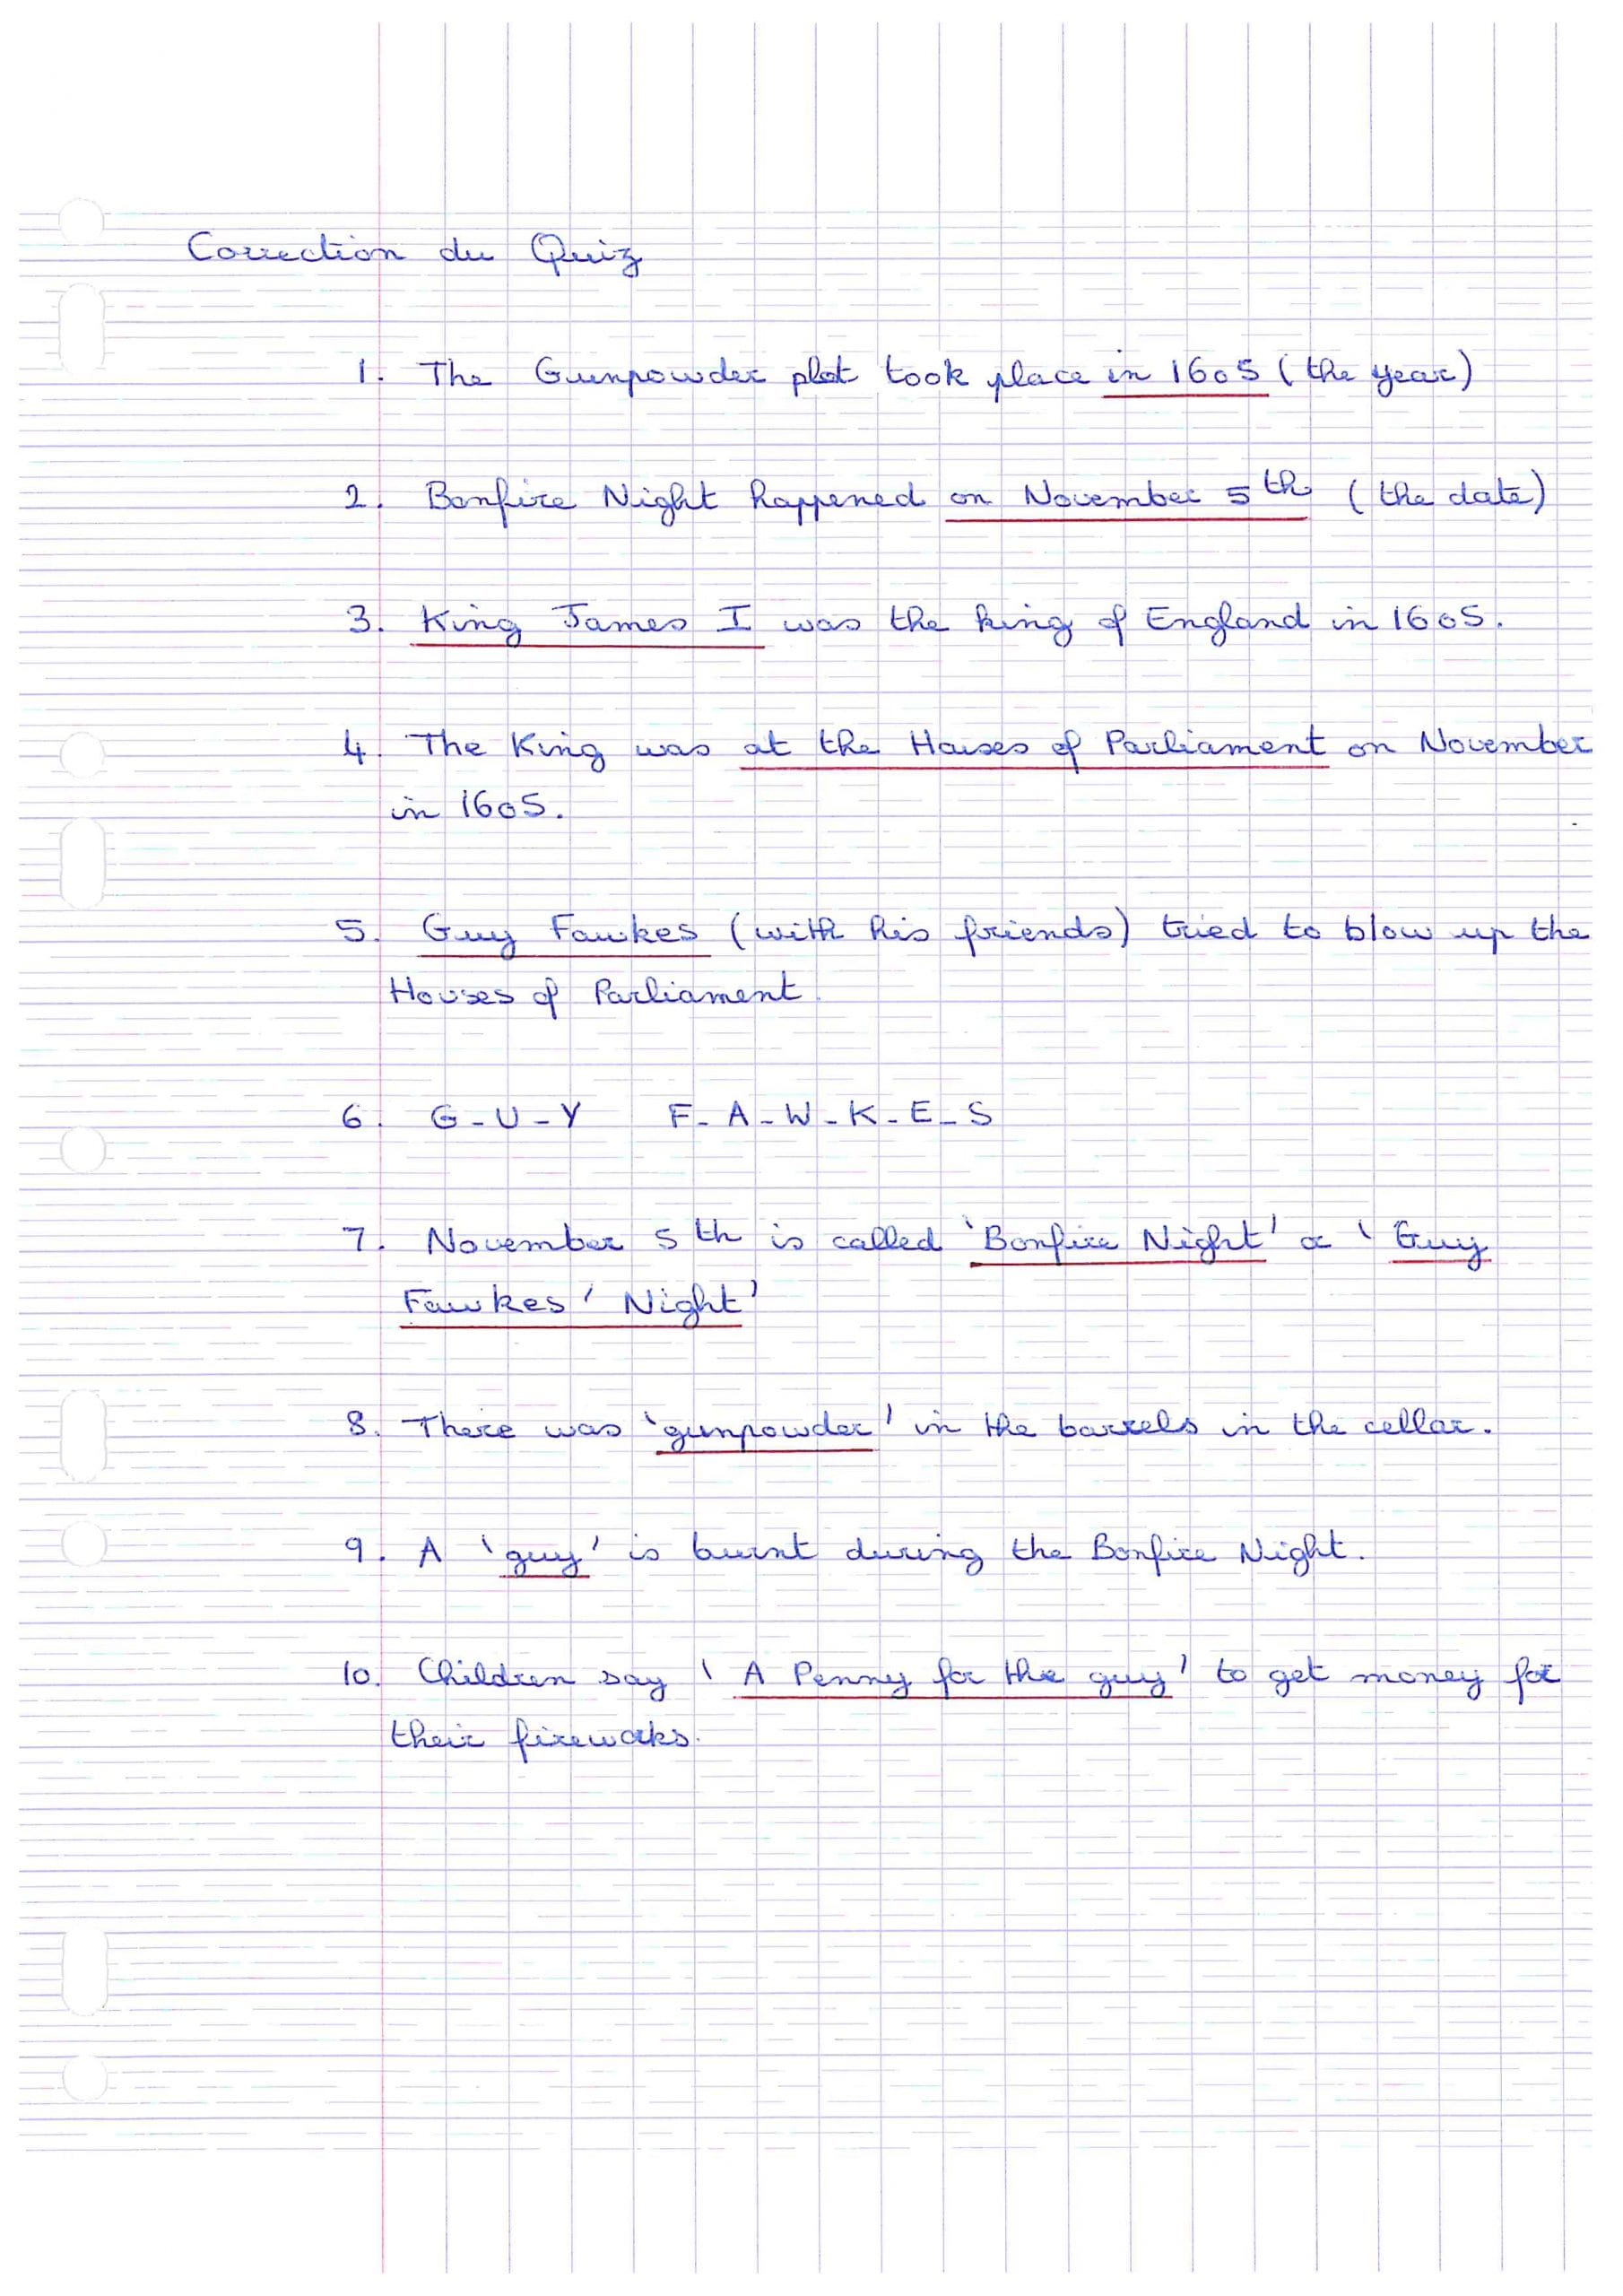 Correction du Quiz
1. The Gunpowder plot took place in 1605 (the year)
2. Bonfire Night happened on November 5th (the date)
3. King James I was the king of England in 1605.
4. The King was at the Houses of Parliament on November
in 1605.
5. Guy Fawkes (with his friends) tried to blow up the
Houses of Parliament.
6. G-U-Y F-A-W-K-E-S
7. November 5th is called 'Bonfire Night' or 'Guy
Fawkes' Night'
8. There was 'gunpowder' in the barrels in the cellar.
9. A 'guy' is burnt during the Bonfire Night.
10. Children say 'A Penny for the guy' to get money for
their fireworks.